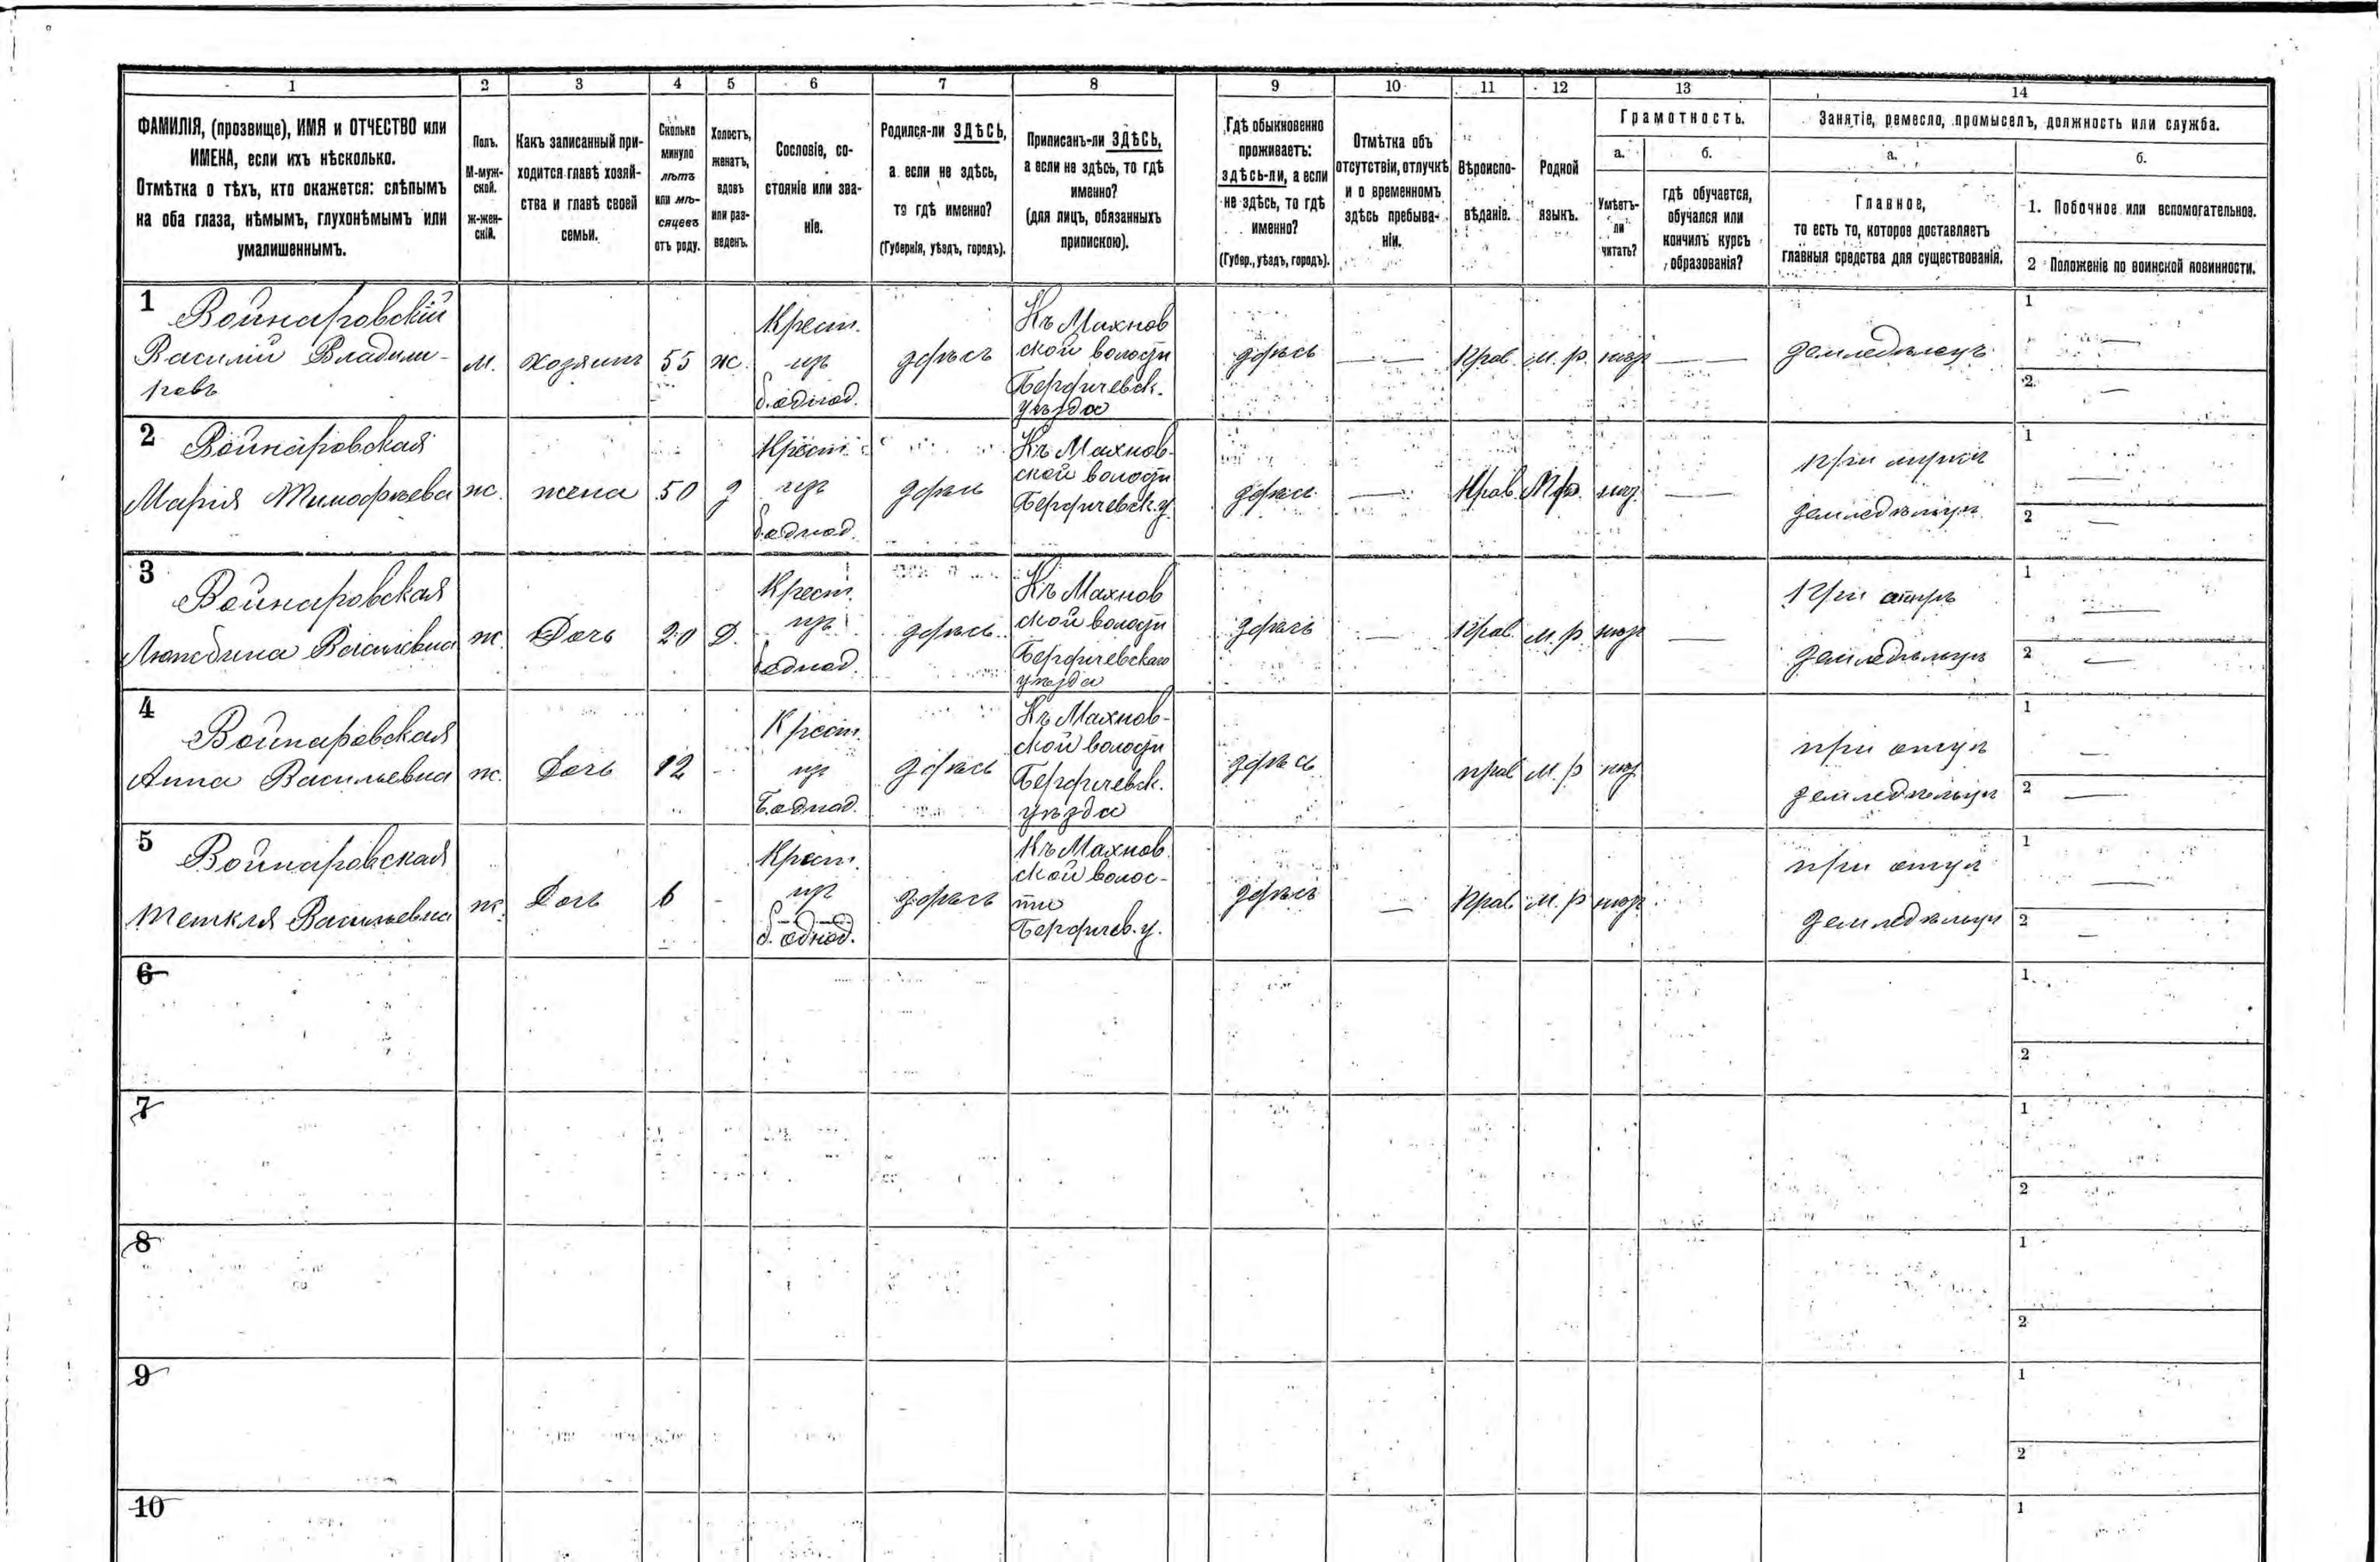 1 2 3 4 5 6 7 8 9 10 11 12 13 14
ФАМИЛІЯ, (прозвище), ИМЯ и ОТЧЕСТВО или
ИМЕНА, если ихъ нѣсколько.
Отмѣтка о тѣхъ, кто окажется: слѣпымъ
на оба глаза, нѣмымъ, глухонѣмымъ или
умалишеннымъ.
Полъ.
М-муж-
ской.
ж-жен-
скій.
Какъ записанный при-
ходится главѣ хозяй-
ства и главѣ своей
семьи.
Сколько
минуло
лѣтъ
или мѣ-
сяцевъ
отъ роду.
Холостъ,
женатъ,
вдовъ
или раз-
веденъ.
Сословіе, со-
стояніе или зва-
ніе.
Родился-ли ЗДѢСЬ,
а если не здѣсь,
то гдѣ именно?
(Губернія, уѣздъ, городъ).
Приписанъ-ли ЗДѢСЬ,
а если не здѣсь, то гдѣ
именно?
(для лицъ, обязанныхъ
припискою).
Гдѣ обыкновенно
проживаетъ:
здѣсь-ли, а если
не здѣсь, то гдѣ
именно?
(Губер., уѣздъ, городъ).
Отмѣтка объ
отсутствіи, отлучкѣ
и о временномъ
здѣсь пребыва-
ніи.
Вѣроиспо-
вѣданіе.
Родной
языкъ.
Грамотность.
а.
Умѣетъ-
ли
читать?
б.
гдѣ обучается,
обучался или
кончилъ курсъ
образованія?
Занятіе, ремесло, промыселъ, должность или служба.
а.
Главное,
то есть то, которое доставляетъ
главныя средства для существованія.
б.
1. Побочное или вспомогательное.
2 Положеніе по воинской повинности.
1 Войнаровскій
Василій Владими-
ровъ
м.
хозяинъ
55
ж.
Крест.
изъ
б. однод.
здѣсь
Къ Махнов
ской волости
Бердичевск.
уѣзда
здѣсь
Прав.
м. р.
земледѣлецъ
1
2
2 Войнаровская
Марія Тимофѣева
ж.
жена
50
з
Крест.
изъ
б. однод.
здѣсь
Къ Махнов-
ской волости
Бердичевск. у.
здѣсь
Прав.
М. р.
при мужѣ
земледѣльцѣ
1
2
3 Войнаровская
Васильевна
ж.
Дочь
20
Д.
Крест.
изъ
б. однод.
здѣсь
Къ Махнов
ской волости
Бердичевскаго
уѣзда
здѣсь
Прав.
м. р
При отцѣ
земледѣльцѣ
1
2
4 Войнаровская
Анна Васильевна
ж.
Дочь
12
Крест.
изъ
б. однод.
здѣсь
Къ Махнов-
ской волости
Бердичевск.
уѣзда
здѣсь
прав
м. р
при отцѣ
земледѣльцѣ
1
2
5 Войнаровская
Текля Васильевна
ж.
Дочь
6
Крест.
изъ
б. однод.
здѣсь
Къ Махнов.
ской волос-
ти
Бердичев. у.
здѣсь
Прав
м. р
при отцѣ
земледѣльцѣ
1
2
6
1
2
7
1
2
8
1
2
9
1
2
10
1